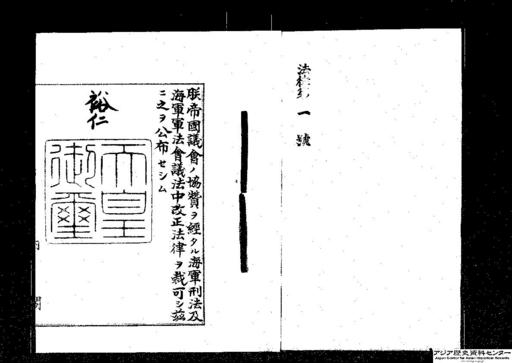 法律第一號
朕帝國議會ノ協贊ヲ經タル海軍刑法及
海軍軍法會議法中改正法律ヲ裁可シ茲
ニ之ヲ公布セシム
裕仁
天皇
御璽
内閣
アジア歴史資料センター
Japan Center for Asian Historical Records